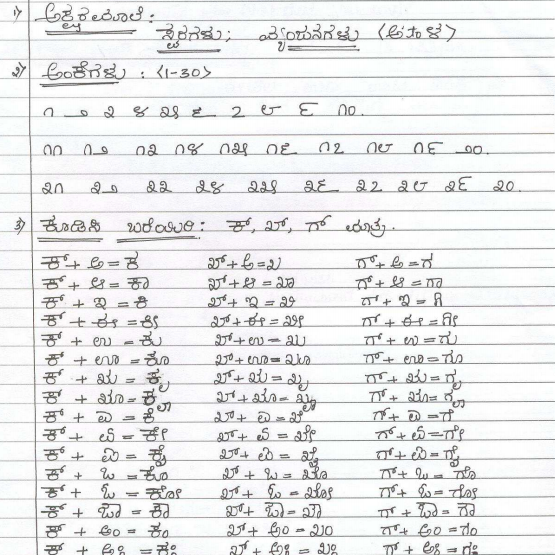 1) ಅಕ್ಷರಮಾಲೆ :
ಸ್ವರಗಳು; ವ್ಯಂಜನಗಳು <ಅ-ಳ>
2) ಅಂಕೆಗಳು : <1-30>
೧ ೨ ೩ ೪ ೫ ೬ ೭ ೮ ೯ ೧೦.
೧೧ ೧೨ ೧೩ ೧೪ ೧೫ ೧೬ ೧೭ ೧೮ ೧೯ ೨೦.
೨೧ ೨೨ ೨೩ ೨೪ ೨೫ ೨೬ ೨೭ ೨೮ ೨೯ ೩೦.
3) ಕೂಡಿಸಿ ಬರೆಯಿರಿ: ಕ್, ಖ್, ಗ್ ಮಾತ್ರ.
ಕ್ + ಅ = ಕ ಖ್ + ಅ = ಖ ಗ್ + ಅ = ಗ
ಕ್ + ಆ = ಕಾ ಖ್ + ಆ = ಖಾ ಗ್ + ಆ = ಗಾ
ಕ್ + ಇ = ಕಿ ಖ್ + ಇ = ಖಿ ಗ್ + ಇ = ಗಿ
ಕ್ + ಈ = ಕೀ ಖ್ + ಈ = ಖೀ ಗ್ + ಈ = ಗೀ
ಕ್ + ಉ = ಕು ಖ್ + ಉ = ಖು ಗ್ + ಉ = ಗು
ಕ್ + ಊ = ಕೂ ಖ್ + ಊ = ಖೂ ಗ್ + ಊ = ಗೂ
ಕ್ + ಋ = ಕೃ ಖ್ + ಋ = ಖೃ ಗ್ + ಋ = ಗೃ
ಕ್ + ೠ = ಕೄ ಖ್ + ೠ = ಖೄ ಗ್ + ೠ = ಗೄ
ಕ್ + ಎ = ಕೆ ಖ್ + ಎ = ಖೆ ಗ್ + ಎ = ಗೆ
ಕ್ + ಏ = ಕೇ ಖ್ + ಏ = ಖೇ ಗ್ + ಏ = ಗೇ
ಕ್ + ಐ = ಕೈ ಖ್ + ಐ = ಖೈ ಗ್ + ಐ = ಗೈ
ಕ್ + ಒ = ಕೊ ಖ್ + ಒ = ಖೊ ಗ್ + ಒ = ಗೊ
ಕ್ + ಓ = ಕೋ ಖ್ + ಓ = ಖೋ ಗ್ + ಓ = ಗೋ
ಕ್ + ಔ = ಕೌ ಖ್ + ಔ = ಖೌ ಗ್ + ಔ = ಗೌ
ಕ್ + ಅಂ = ಕಂ ಖ್ + ಅಂ = ಖಂ ಗ್ + ಅಂ = ಗಂ
ಕ್ + ಅಃ = ಕಃ ಖ್ + ಅಃ = ಖಃ ಗ್ + ಅಃ = ಗಃ